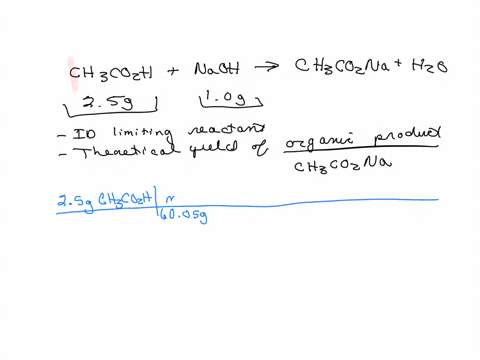 CH3CO2H + NaOH → CH3CO2Na + H2O
2.5g 1.0g
- ID limiting reactant
- Theoretical yield of organic product
CH3CO2Na
2.5g CH3CO2H | m
60.05g